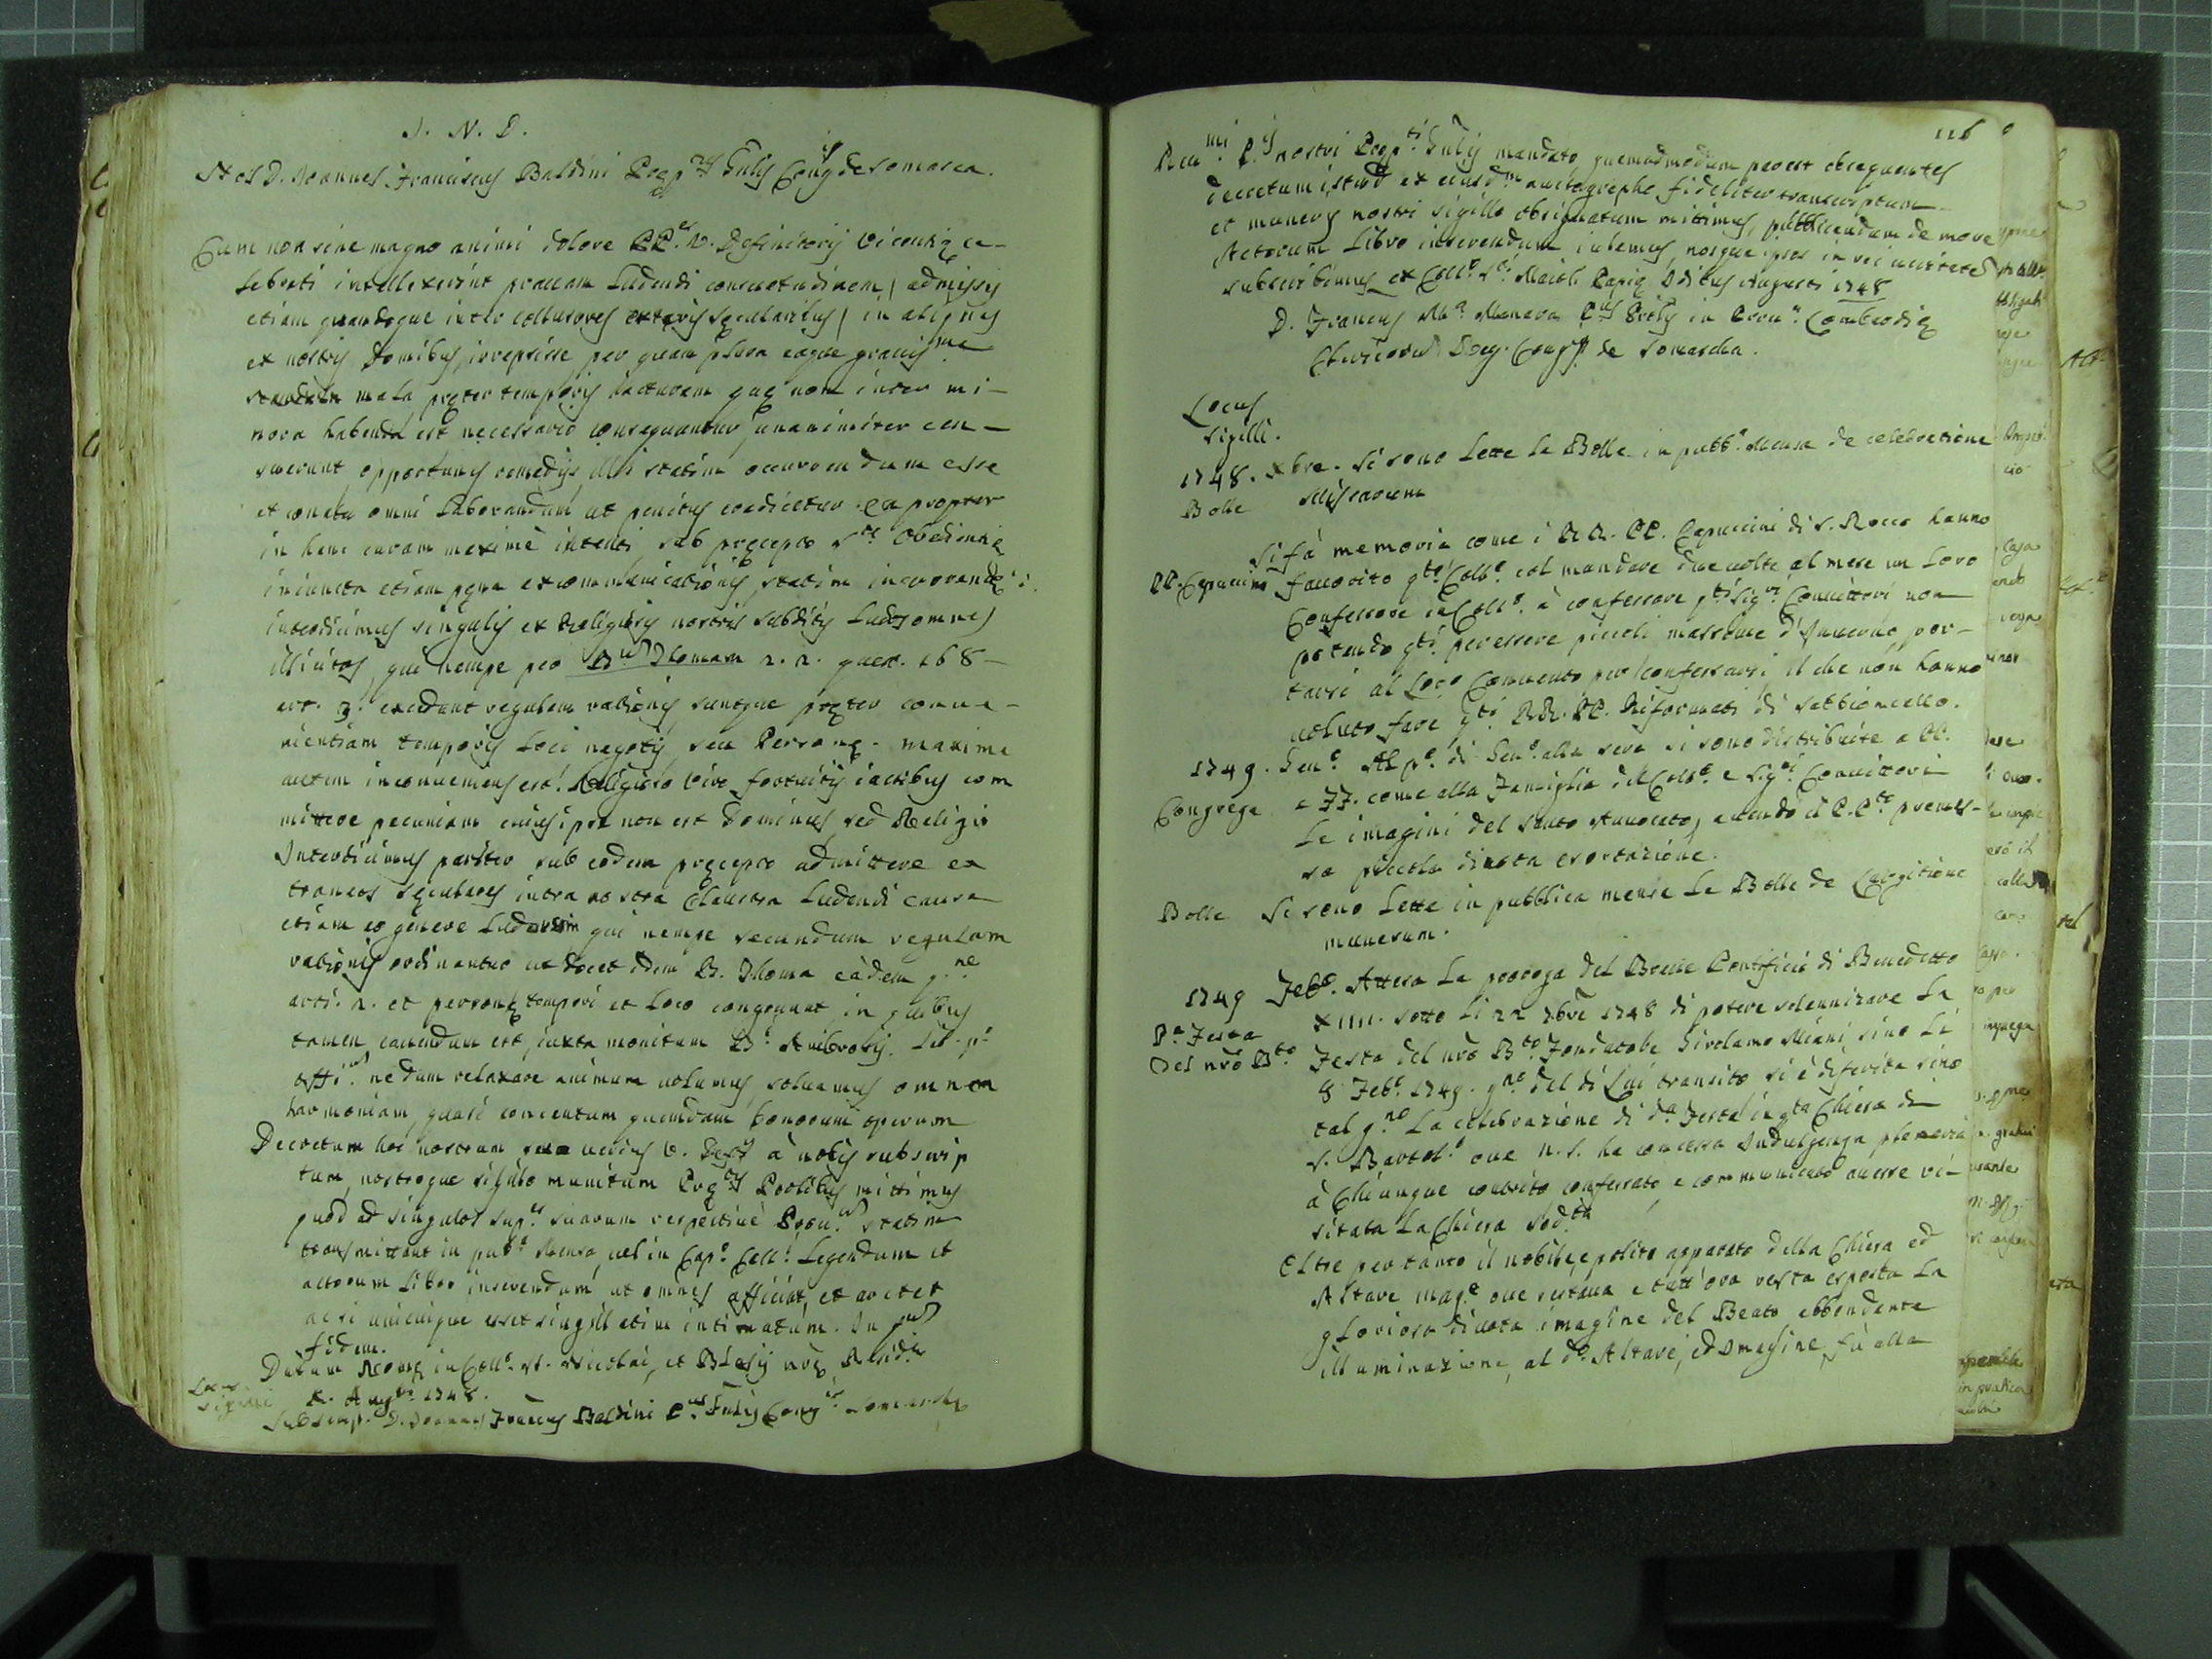 J. N. D.
Nos D. Joannes Franciscus Baldini Prep.tus Gñlis Cong.is de Somasca.
Cum non sine magno animi dolore PP.es V. Definitorij Vicentiæ ce-
lebrati intellexerint pravam Ludendi consuetudinem, admissis
etiam quandoque inter collusores exteris sæcularibus, in aliquas
ex nostris Domibus irrepsisse per quam plura eaque gravis.ma
mala præter temporis iacturam quæ non inter mi-
nora habenda est necessario consequantur, unanimiter cen-
suerunt opportunis remedijs illi statim occurrendum esse
et conatu omni laborandum ut penitus eradicetur. Ea propter
in hanc curam maximè intenti sub præcepto S.tæ Obedientiæ
iniuncta etiam pæna excommunicationis statim incurrendæ
interdicimus singulis ex Religiosis nostris subditis Ludos omnes
illicitos, qui nempe pro D. Thomam 2. 2. quæst. 168
art. 3. excedunt regulam rationis suntque præter conve-
nientiam temporis Loci negotij, seu Personæ. maxime
autem inconveniens est Religioso viro fortuitis iactibus com
mittere pecuniam cuius ipse non est Dominus sed Religio
Interdicimus pariter sub eodem præcepto admittere ex
traneos sæculares intra nostra Claustra Ludendi causa
etiam eo genere Ludorum qui nempe secundum regulam
rationis ordinantur ut docet idem D. Thoma eàdem q.ne
arti. 2. et personæ tempori et Loco congruunt in quibus
tamen cavendum est, iuxta monitum D. Ambrosij. Lib. p.o
offi. ne dum relaxare animum volumus, solvamus omnem
harmoniam, quasi concentum quemdam bonorum operum
Decretum hoc nostrum seu verius V. Def.ij à nobis subscrip
tum, nostroque sigillo munitum Præp.tis Prov.libus mittimus
quod ad singulos sup.es suarum respectivè Prov. statim
transmittant in pub.a Mensa, vel in Cap.o Coll.i Legendum et
actorum Libro inserendum ut omnes afficiat, et arctet
ac si unicuique esset singillatim intimatum. In quo
fidem.
Datum Romæ in Coll.o SS. Nicolai, et Blasij nræ Resid.æ
Locus sigilli X. Aug.ti 1748.
Subscrip. D. Joannes Francus Baldini P.tus Gñlis Cong.is Somaschæ
126
Rev.mi P.is nostri Præp.ti Gñlis mandato, quemadmodum par est obsequentes
decretum istud ex eiusd.m autographo fideliter transcriptum
et muneris nostri sigillo obsignatum mittimus, publicandum de more
Actorum Libro inserendum iubemus, nosque ipsos in rei veritatem
subscribimus ex Coll.o S.ti Maioli Papiæ Idibus Augusti 1748
D. Francus M.a Manara P.tus Prõlis in Prov.a Lombardiæ
Clericorum Reg. Cong. de Somascha.
Locus
Sigilli.
1748. Xbre. Si sono Lette Le Bolle in pubb.a Mensa de celebratione
Bolle Missarum
Si fà memoria come i RR. PP. Capuccini di S. Rocco hanno
PP. Capuccini favorito q.to Coll.o col mandare due volte al mese un Loro
Confessore in Coll.o à confessare q.ti Sig.ri Convittori non
potendo q.ti per essere piccoli massime d'Inverno por-
tarsi al Loro Convento per confessarsi, il che non hanno
voluto fare q.ti RR. PP. Riformati di Sabbioncello.
1749. Gen.o Al p.o di Gen.o alla sera si sono distribuite a PP.
Congrega e FF. come alla Famiglia del Coll.o e Sig.ri Convittori
Le imagini del Santo Avvocato, avendo il P. P.to premes-
sa piccola divota esortazione.
Bolle Si sono Lette in pubblica mensa Le Bolle de Largitione
munerum.
1749 Feb.o Attesa La proroga del Breve Pontificio di Benedetto
XIIII. sotto Li 22 7bre 1748 di potere solennizare La
P.a Festa Festa del nrõ B.to Fondatore Girolamo Miani sino Li
del nrõ B.to 8 Feb.o 1749. g.no del di Lui transito si è diferita sino
tal g.no La celebrazione di d.a Festa in q.ta Chiesa di
S. Bartol.o ove N. S. ha concessa Indulgenza plenaria
à Chiunque contrito confessato e communicato avesse vi-
sitata La Chiesa sud.ta
Oltre per tanto il nobile, e polito apparato della Chiesa ed
Altare mag.e ove restava e tutt'ora resta esposta La
gloriosa divota imagine del Beato abbondante
illuminazione, al d.o Altare, ed Imagine, fù alla